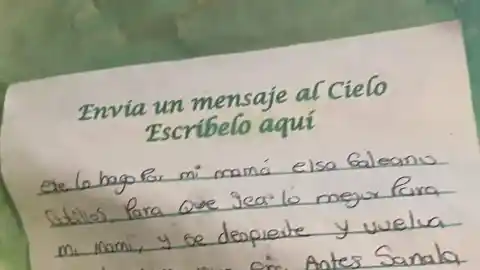 Envia un mensaje al Cielo
Escríbelo aquí
lo hago por mi mamá elsa Galeano
Para que sea lo mejor Para
mi mami, y se despierte y vuelva
Antes Sanala